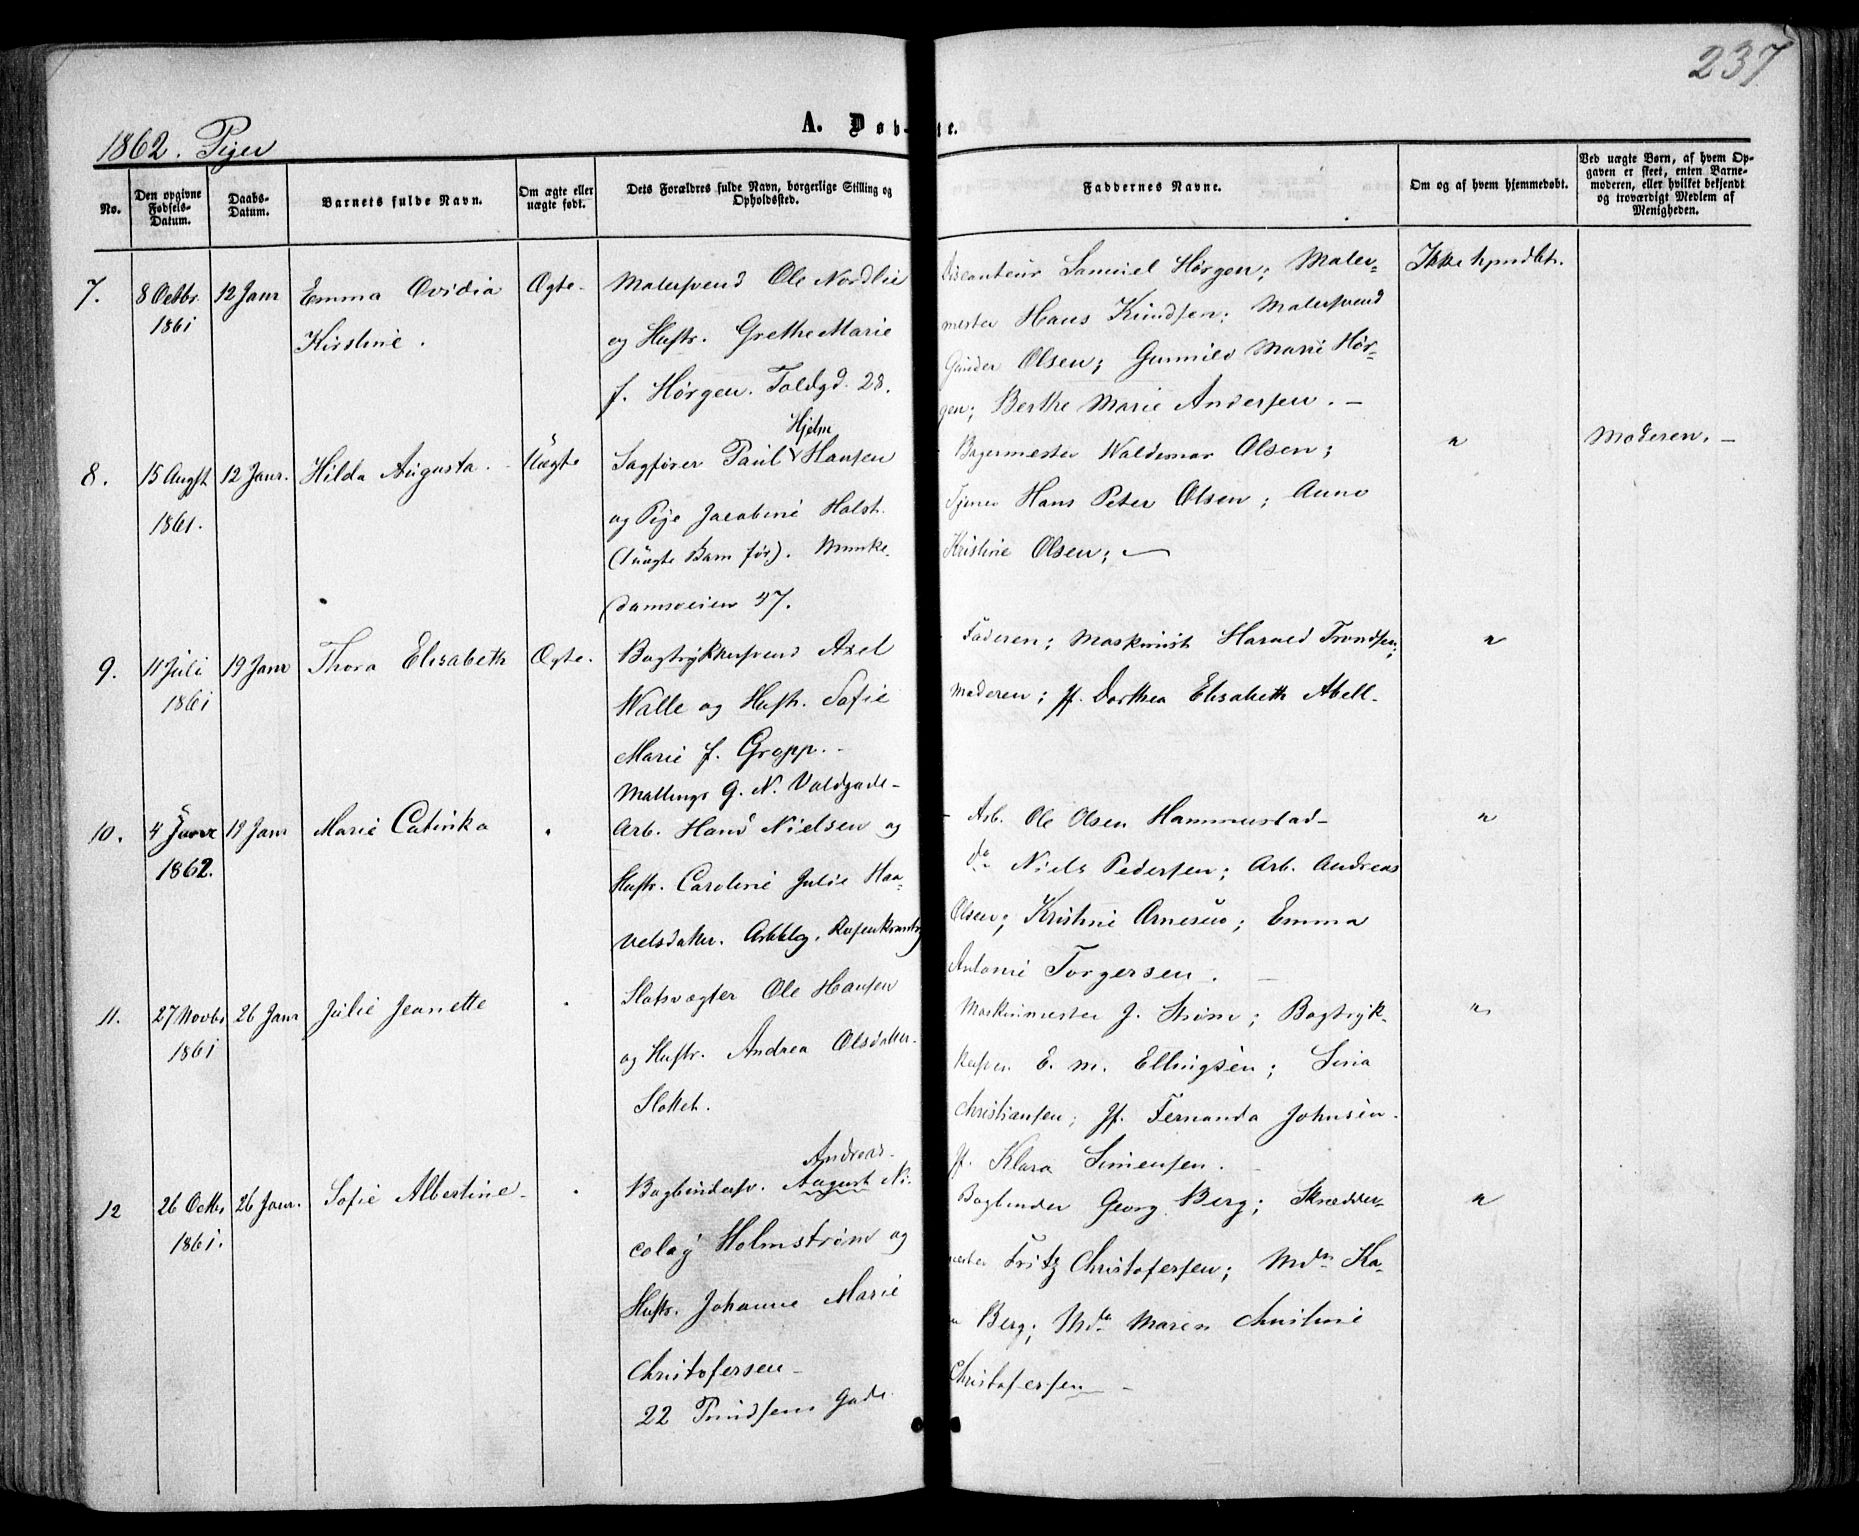 237
A. Døb-te.
1862. Piger
No.
Den opgivne Fødsels-Datum.
Daabs-Datum.
Barnets fulde Navn.
Om ægte eller uægte født.
Dets Forældres fulde Navn, borgerlige Stilling og Opholdssted.
Faddernes Navne.
Om og af hvem hjemmedøbt.
Ved uægte Børn, af hvem Opgaven er skeet, enten Barnemoderen, eller hvilket bekjendt og troværdigt Medlem af Menigheden.
7.
8 Octbr 1861
12 Janr
Emma Ovidia
Kirstine.
Ægte.
Malersvend Ole Nordlie
og Hustr. Grethe Marie
f. Hørgen. Toldgd. 28.
Samuel Hørgen; Maler-
mester Hans Knudsen; Malersvend
Gunder Olsen; Gunnild Marie Hør-
gen; Berthe Marie Andersen. -
Ikke hjmdbt.
8.
15 Augst 1861.
12 Janr.
Hilda Augusta.
Uægte
Hjelm
Sagfører Paul Hansen
og Pige Jacobine Holst.
(1 uægte Barn før). Munke-
damsveien 47.
Bagermester Waldemar Olsen;
Tjener Hans Peter Olsen; Anne
Kristine Olsen;
"
Moderen. -
9.
11 Juli 1861
19 Janr
Thora Elisabeth
Ægte.
Bogtrykkersvend Axel
Walle og Hustr. Sofie
Marie f. Gropp. -
Mallings G. N. Voldgade-
Faderen; Maskinist Harald Trondsen;
Moderen; Jf. Dorthea Elisabeth Abell-
"
10.
4 Janr 1862.
19 Janr
Marie Catinka
"
Arb. Hans Nielsen og
Hustr. Caroline Julie Haa-
velsdatter. Arbblg. Rosenkrantzg
Arb. Ole Olsen Hammerstad-
do Niels Pedersen; Arb. Andreas
Olsen; Kristine Arnesen; Emma
Antonie Torgersen. -
"
11.
27 Novbr 1861
26 Janr
Julie Jeanette
"
Slotsvægter Ole Hansen
og Hustr. Andrea Olsdatter-
Slottet.
Maskinmester J. Strøm; Bogtryk-
kersven E. M. Ellingsen; Lina
Christiansen; Jf. Fernanda Johnsen-
Jf. Klara Simensen. -
"
12
26 Octbr 1861.
26 Janr.
Sofie Albertine-
"
Andreas-
Bogbindersv. August Ni-
colay Holmstrøm og
Hustr. Johanne Marie
Christofersen-
22 Trudsens Gade
Bogbinder Georg Berg; Skrædder-
mester Fritz Christofersen; Mdm Ka-
Berg; Mdm Maren Christine
Christofersen -
"